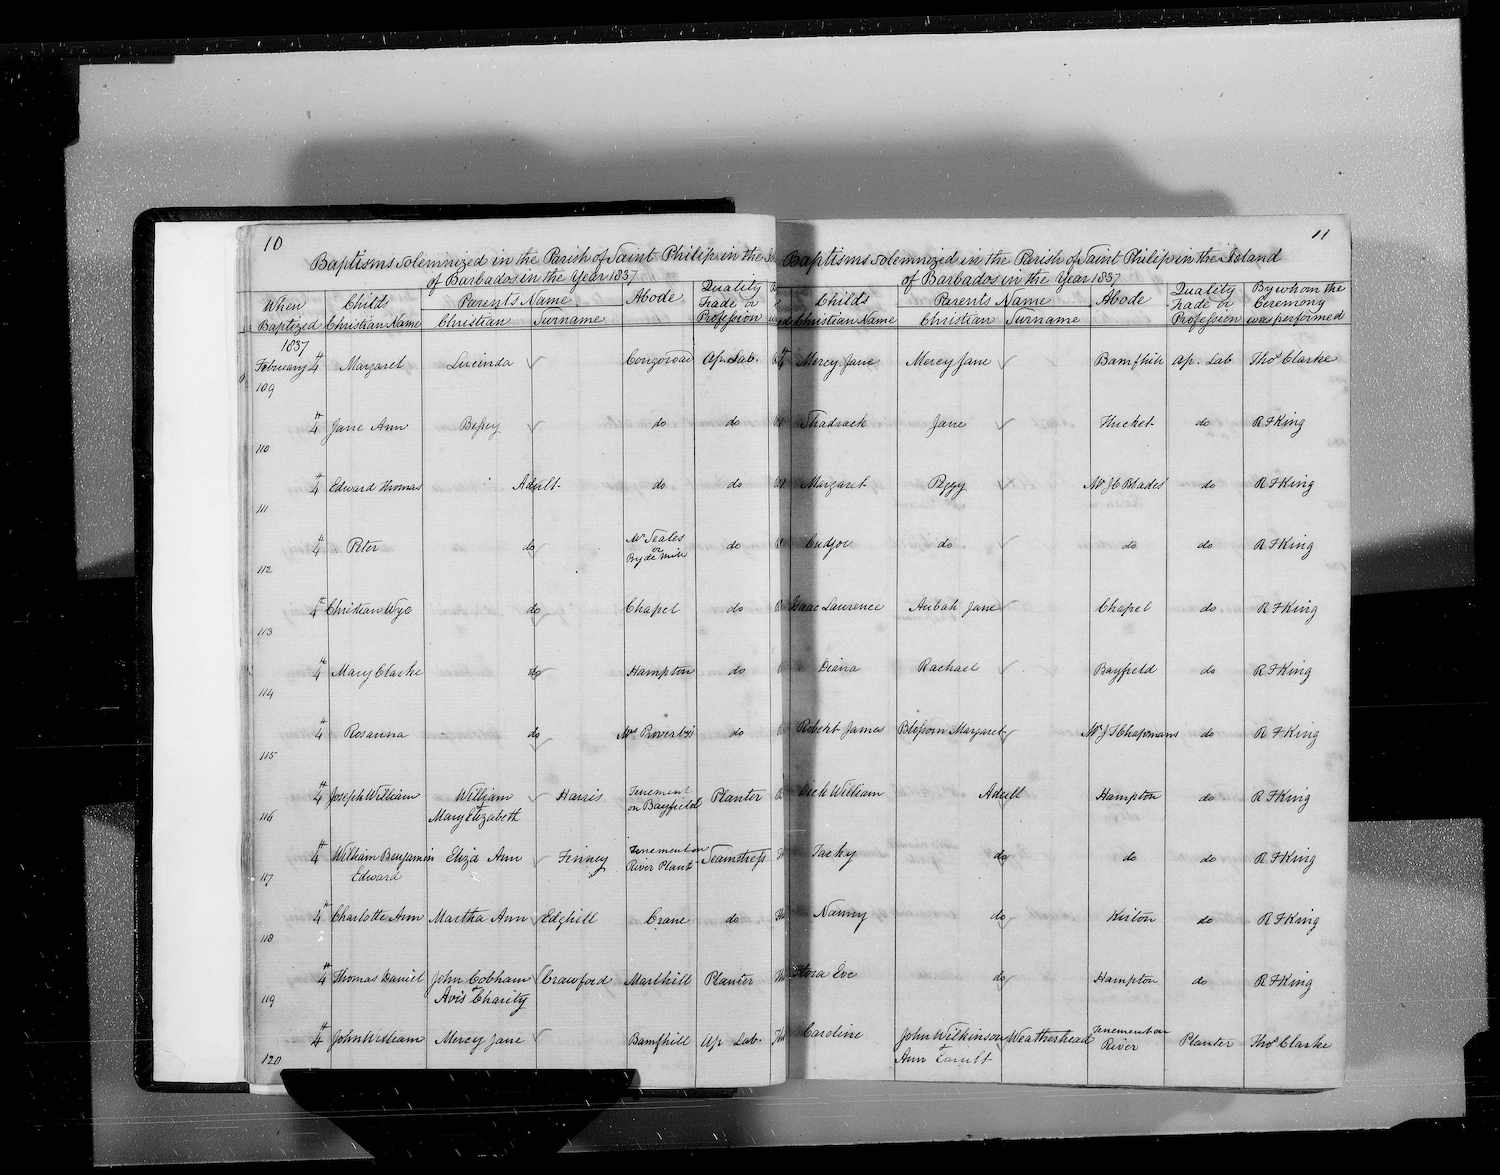 10
Baptisms solemnized in the Parish of Saint Philip in the
of Barbados in the Year 1837
When Baptized | Child Christian Name | Parents Name Christian | Surname | Abode | Quality Trade or Profession
1837
February 4th Margaret Lucinda Ap. Lab.
109
4th Jane Ann Bessey do do
110
4th Edward Thomas Adult do do
111
4th Peter do Mr Teales or Byde Mill do
112
4th Christian Wye do Chapel do
113
4th Mary Clarke do Hampton do
114
4th Rosanna do Mrs Proverbs do
115
4th Joseph William William Harris Tenement Planter
+ Mary Elizabeth on Bayfield
116
4th William Benjamin Eliza Ann Finney Tenement on Seamstress
Edward River Plant
117
4th Charlotte Ann Martha Ann Edghill Crane do
118
4th Thomas Daniel John Cobham Crawford Marlhill Planter
+ Avis Charity
119
4th John William Mercy Jane Bamfhill Ap Lab.
120
11
Baptisms solemnized in the Parish of Saint Philip in the Island
of Barbados in the Year 1837
Childs Christian Name | Parents Name Christian | Surname | Abode | Quality Trade or Profession | By whom the Ceremony was performed
Mercy Jane Mercy Jane Bamfhill Ap. Lab Thos Clarke
Shadrach Jane Thicket do R F King
Margaret Peggy Mr J C Blades do R F King
Cudjoe do do do R F King
Isaac Laurence Aubah Jane Chapel do R F King
Diana Rachael Bayfield do R F King
Robert James Blossom Margaret Mr J T Chapmans do R F King
Dick William Adult Hampton do R F King
Jacky do do do R F King
Nanny do Kirton do R F King
Flora Eve do Hampton do R F King
Caroline John Wilkinson Weatherhead Tenement on Planter Thos Clarke
+ Ann River